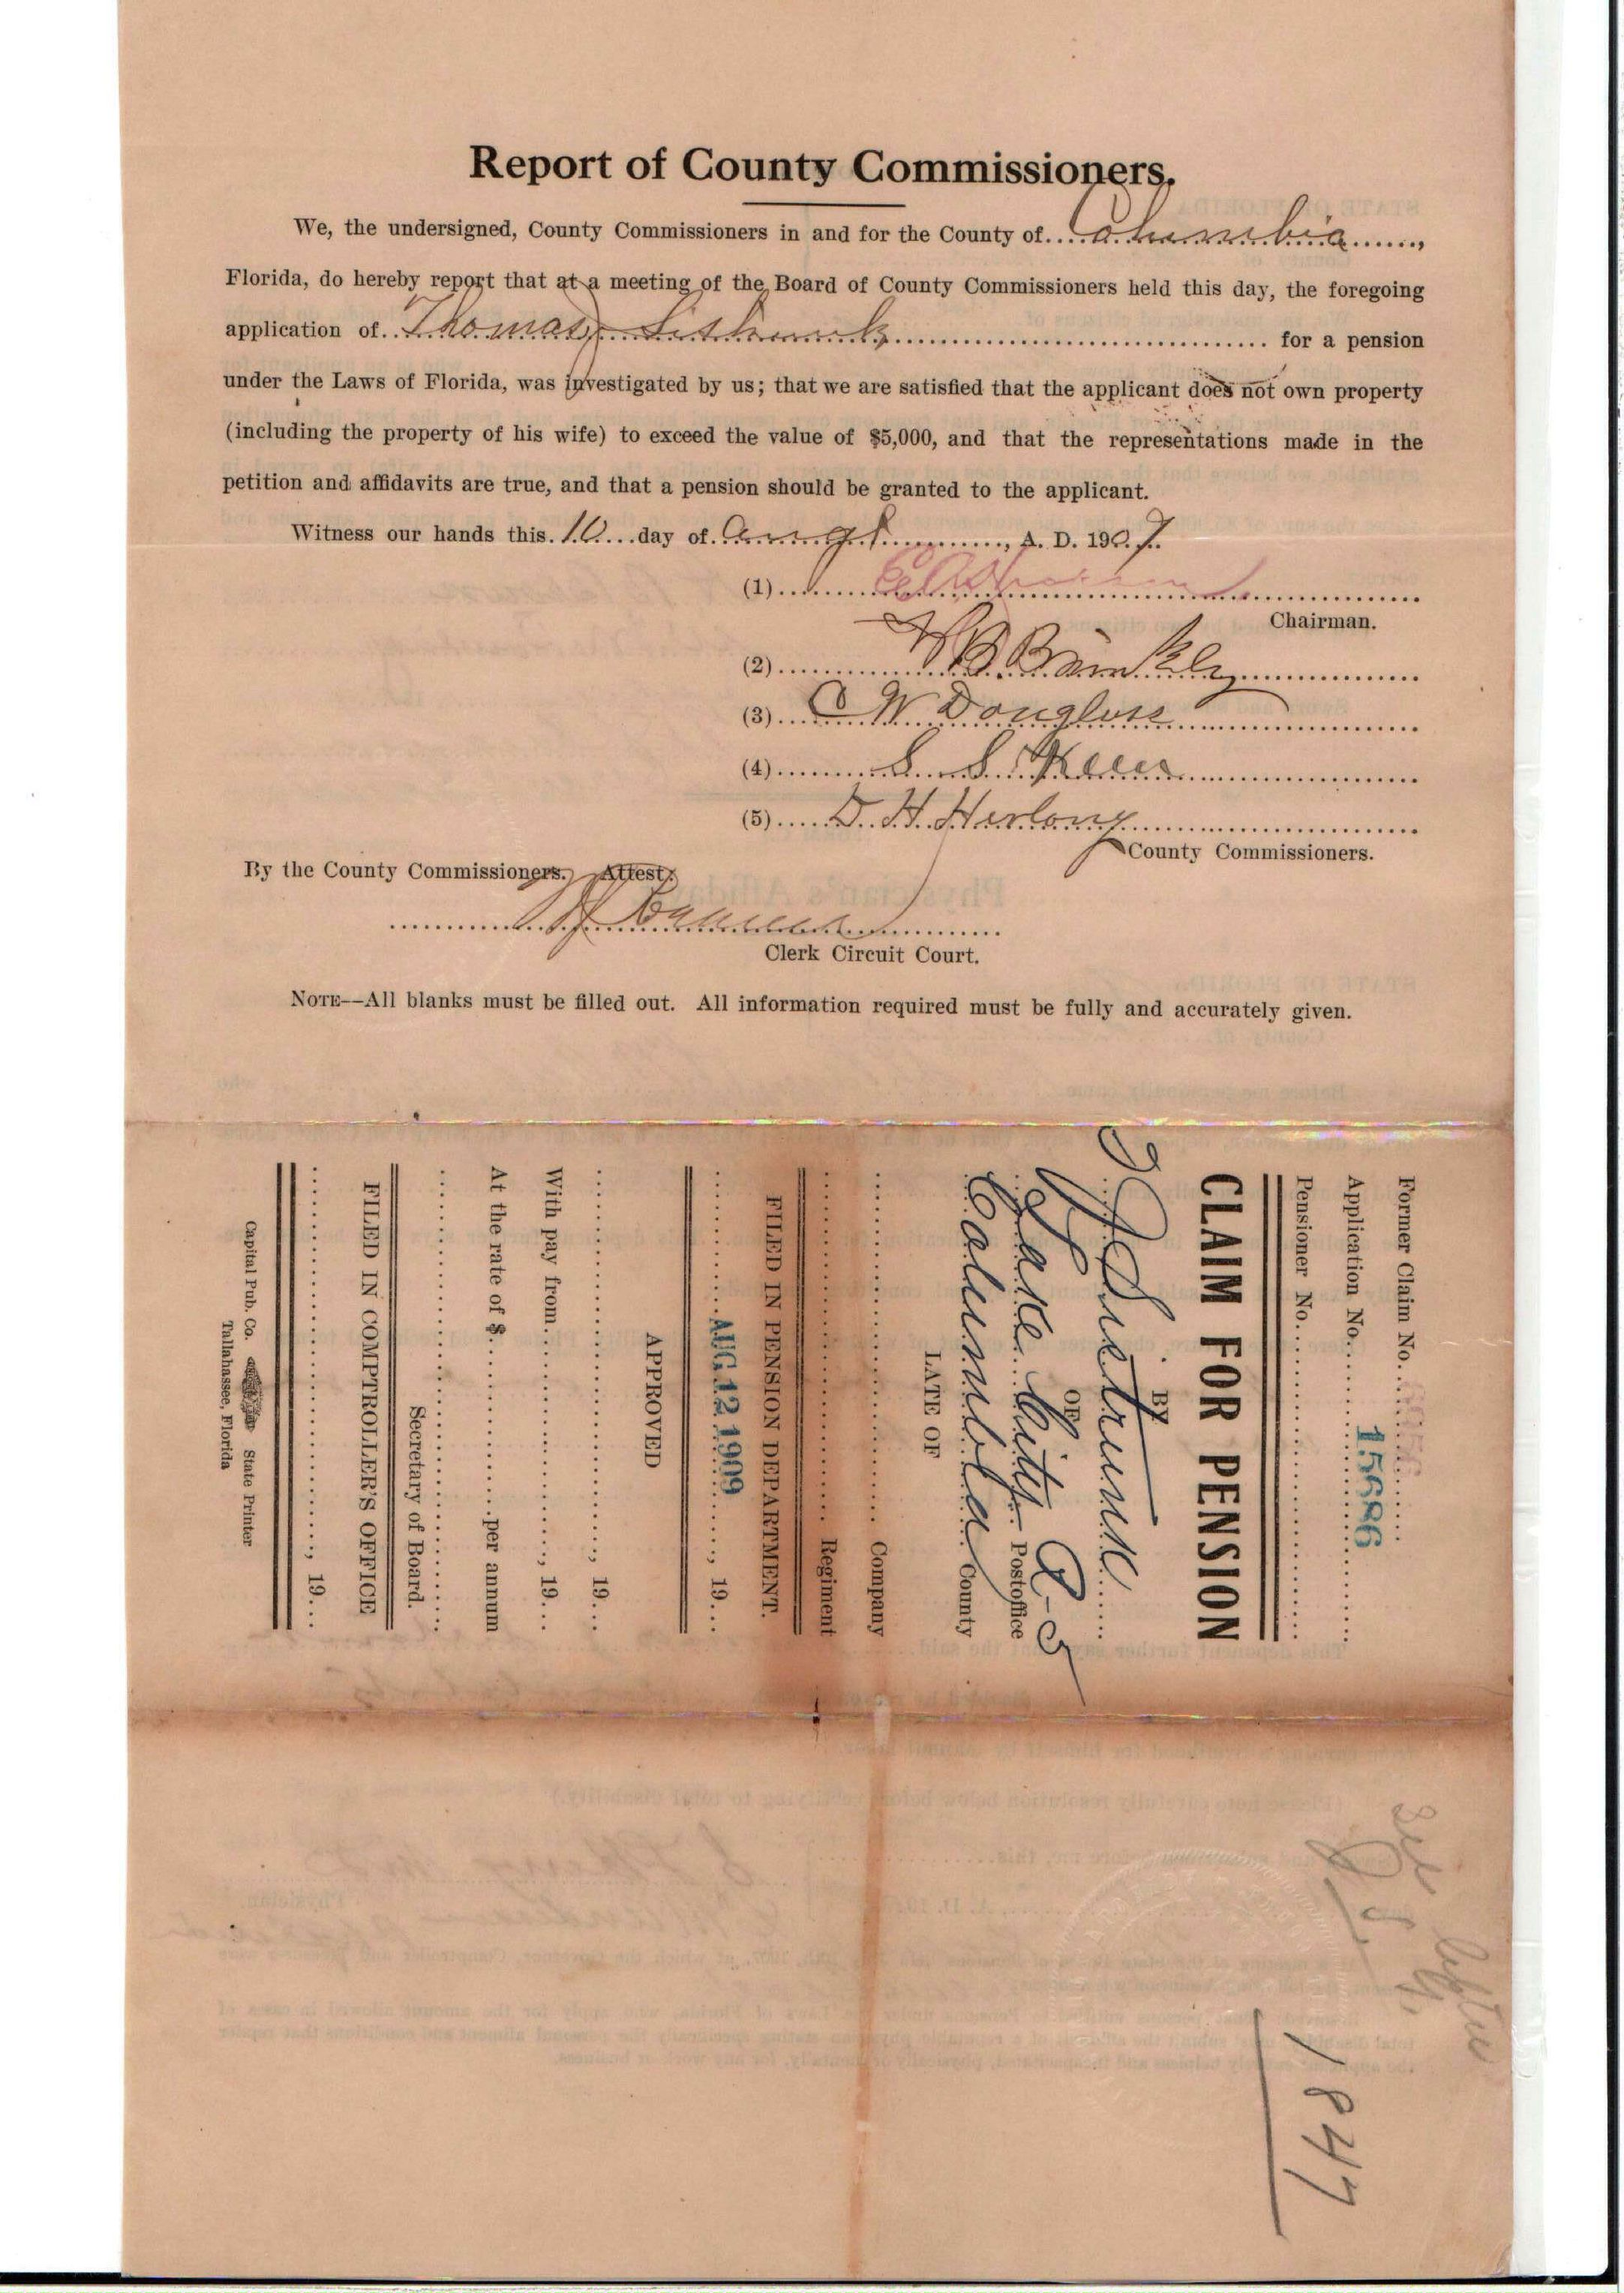 Report of County Commissioners.
We, the undersigned, County Commissioners in and for the County of....Columbia......,
Florida, do hereby report that at a meeting of the Board of County Commissioners held this day, the foregoing
application of..Thomas J. .................... for a pension
under the Laws of Florida, was investigated by us; that we are satisfied that the applicant does not own property
(including the property of his wife) to exceed the value of $5,000, and that the representations made in the
petition and affidavits are true, and that a pension should be granted to the applicant.
Witness our hands this.10...day of..............., A. D. 190.9.
(1)....................
Chairman.
(2)............ B. Brinkley..............
(3)....C W Douglass....................
(4)........S. S. ....................
(5).....D. H. Herlong....................
County Commissioners.
By the County Commissioners. Attest:
....................
Clerk Circuit Court.
NOTE--All blanks must be filled out. All information required must be fully and accurately given.
Former Claim No....................
Application No....15686..........
Pensioner No....................
CLAIM FOR PENSION
BY
T J Sistrunk......
OF
Lake City R-5 Postoffice
Columbia County
LATE OF
.................... Company
.................... Regiment
FILED IN PENSION DEPARTMENT.
..........AUG 12 1909......, 19...
APPROVED
...................., 19...
With pay from...................., 19...
At the rate of $....................per annum
....................
Secretary of Board.
FILED IN COMPTROLLER'S OFFICE
...................., 19...
Capital Pub. Co. State Printer
Tallahassee, Florida
1847